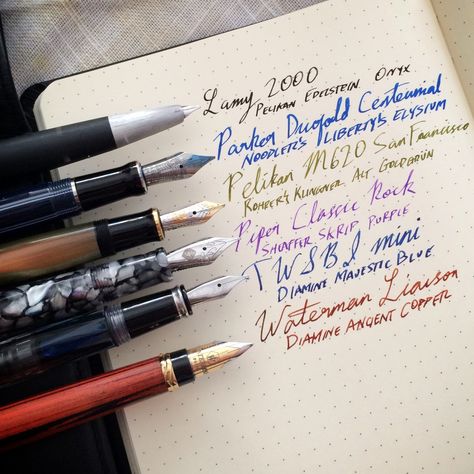 Lamy 2000
Pelikan Edelstein Onyx
Parker Duofold Centennial
Noodler's Liberty's Elysium
Pelikan M620 San Francisco
Rohrer's Klingner Alt Goldgrün
Piper Classic Rock
Sheaffer Skrip Purple
TWSBI mini
Diamine Majestic Blue
Waterman Liaison
Diamine Ancient Copper